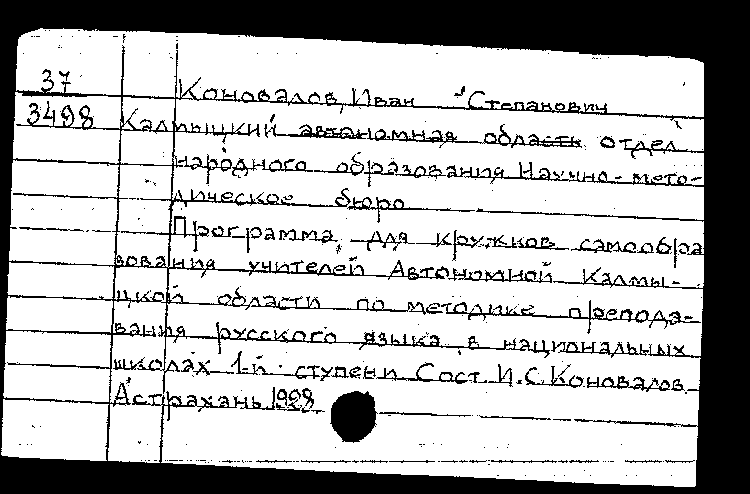 37
Коновалов, Иван Степанович
3498 Калмыцкий автономная область отдел
народного образования Научно-мето-
дическое бюро
Программа для кружков самообра
зования учителей Автономной Калмы-
цкой области по методике препода-
вания русского языка в национальных
школах 1-й ступени Сост. И.С. Коновалов
Астрахань 1928